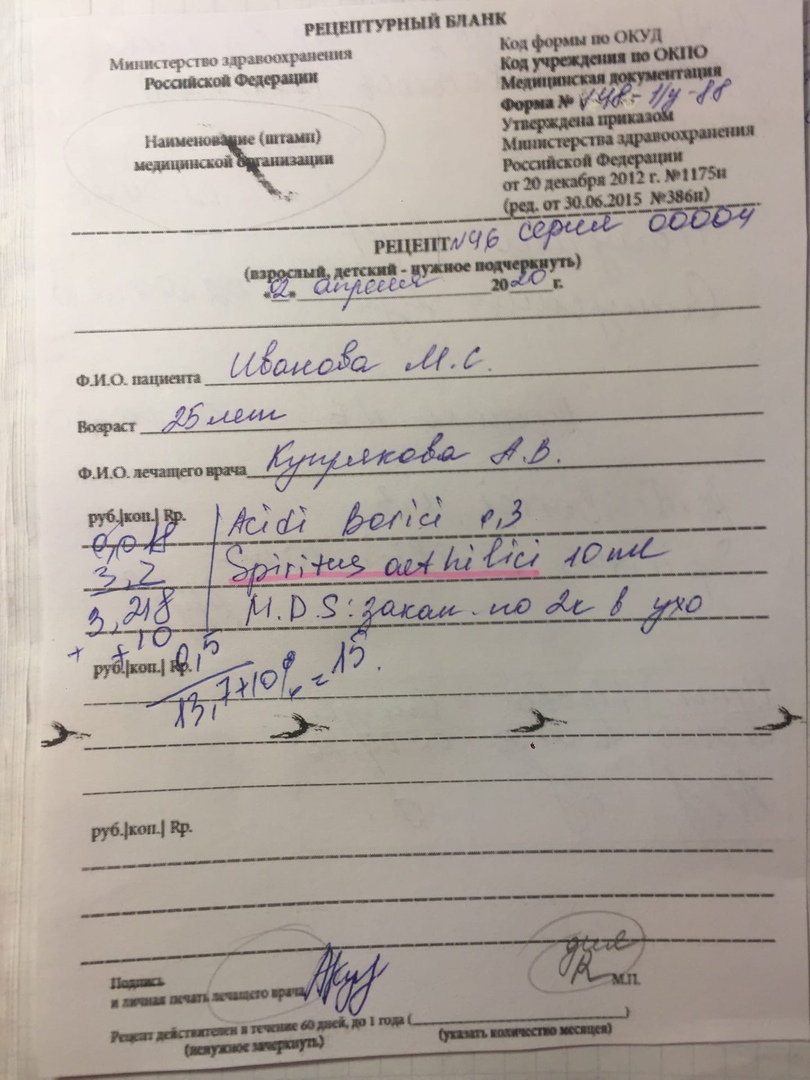 РЕЦЕПТУРНЫЙ БЛАНК
Министерство здравоохранения
Российской Федерации
Наименование (штамп)
медицинской организации
Код формы по ОКУД
Код учреждения по ОКПО
Медицинская документация
Форма № 148-1/у-88
Утверждена приказом
Министерства здравоохранения
Российской Федерации
от 20 декабря 2012 г. №1175н
(ред. от 30.06.2015 №386н)
РЕЦЕПТ №46 серия 00004
(взрослый, детский - нужное подчеркнуть)
«02» апреля 2020 г.
Ф.И.О. пациента Иванова М.С.
Возраст 25 лет
Ф.И.О. лечащего врача Купрякова А.В.
руб.|коп.| Rp. Acidi Borici 0,3
0,018
3,2 Spiritus aethilici 10 ml
3,218 M.D.S: закап. по 2к в ухо
+ +10
руб.|коп.| Rp. 0,5
13,7+10% = 15
руб.|коп.| Rp.
Подпись
и личная печать лечащего врача
для
R
М.П.
Рецепт действителен в течение 60 дней, до 1 года (____)
(ненужное зачеркнуть) (указать количество месяцев)